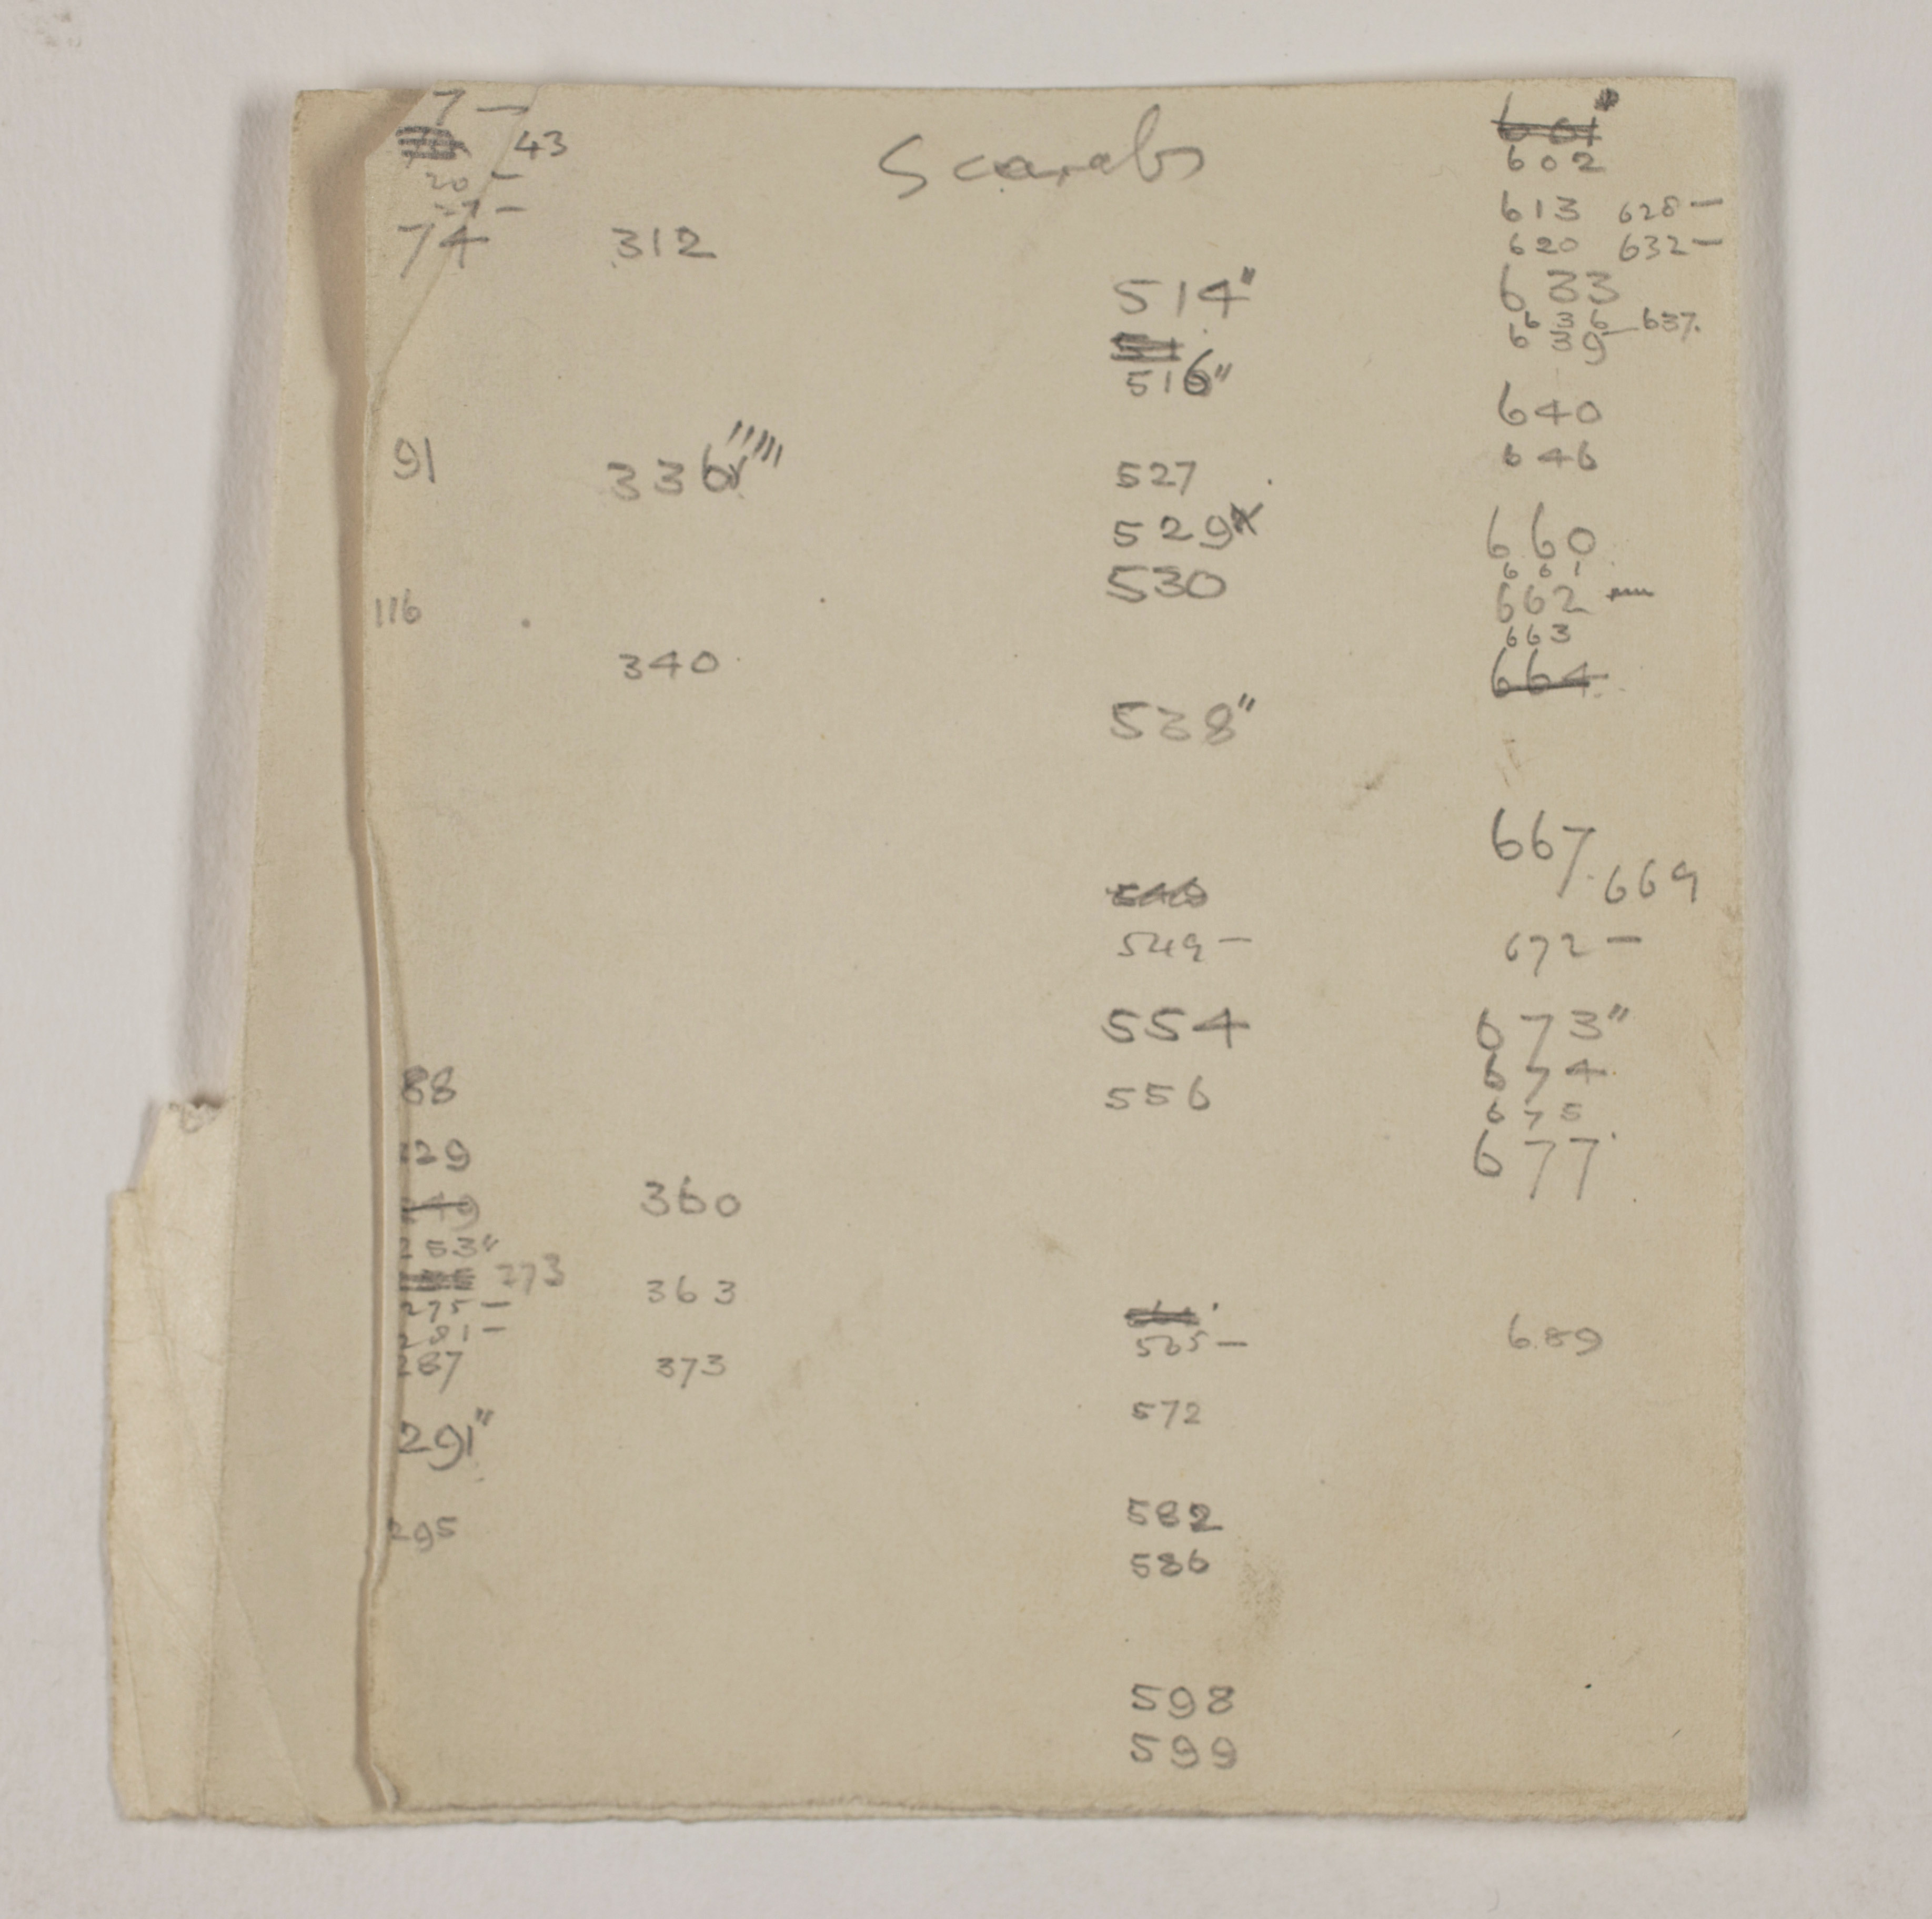 Scarabs
7 —
43
20 —
74
91
116
88
229
253"
273
275 —
287
291"
295
312
336
340
360
363
373
514"
516"
527
529
530
538"
549 —
554
556
565 —
572
582
586
598
599
601
602
613 628 —
620 632 —
633
636 637.
639
640
646
660
661
662 —
663
664
667.
669
672 —
673"
674
675
677
689